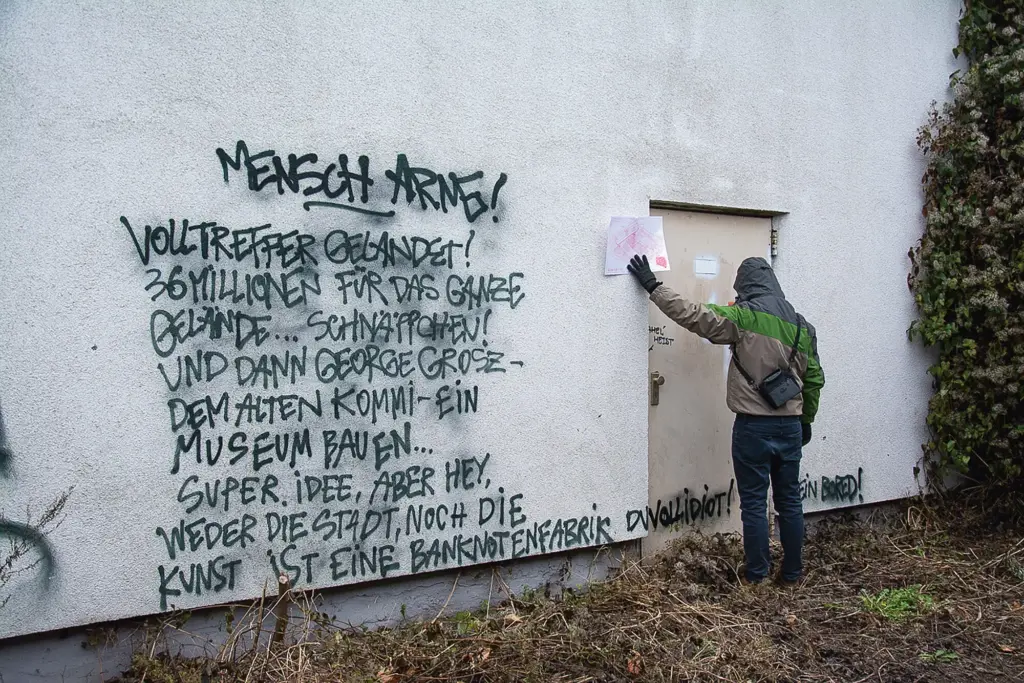 MENSCH ARNE!
VOLLTREFFER GELANDET!
36 MILLIONEN FÜR DAS GANZE
GELÄNDE... SCHNÄPPCHEN!
UND DANN GEORGE GROSZ-
DEM ALTEN KOMMI-EIN
MUSEUM BAUEN...
SUPER IDEE, ABER HEY,
WEDER DIE STADT, NOCH DIE
KUNST IST EINE BANKNOTENFABRIK DU VOLLIDIOT!
HEIST
EIN BORED!